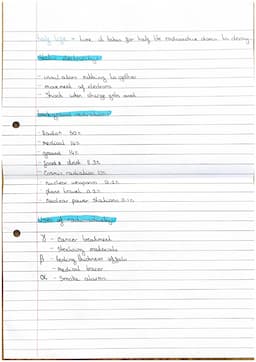 half life = time it takes for half the radioactive atoms to decay
static electricity
- insulators rubbing together
- movement of electrons
- shock when charge gets
background radiation
- Radon 50%
- medical 14%
- ground 14%
- food & drink
- Cosmic radiation
- nuclear weapons 0.2%
- plane travel
- nuclear power stations 0.1%
Uses of radioactivity
γ - cancer treatment
- sterilising materials
β - testing thickness of
- medical tracer
α - smoke alarms